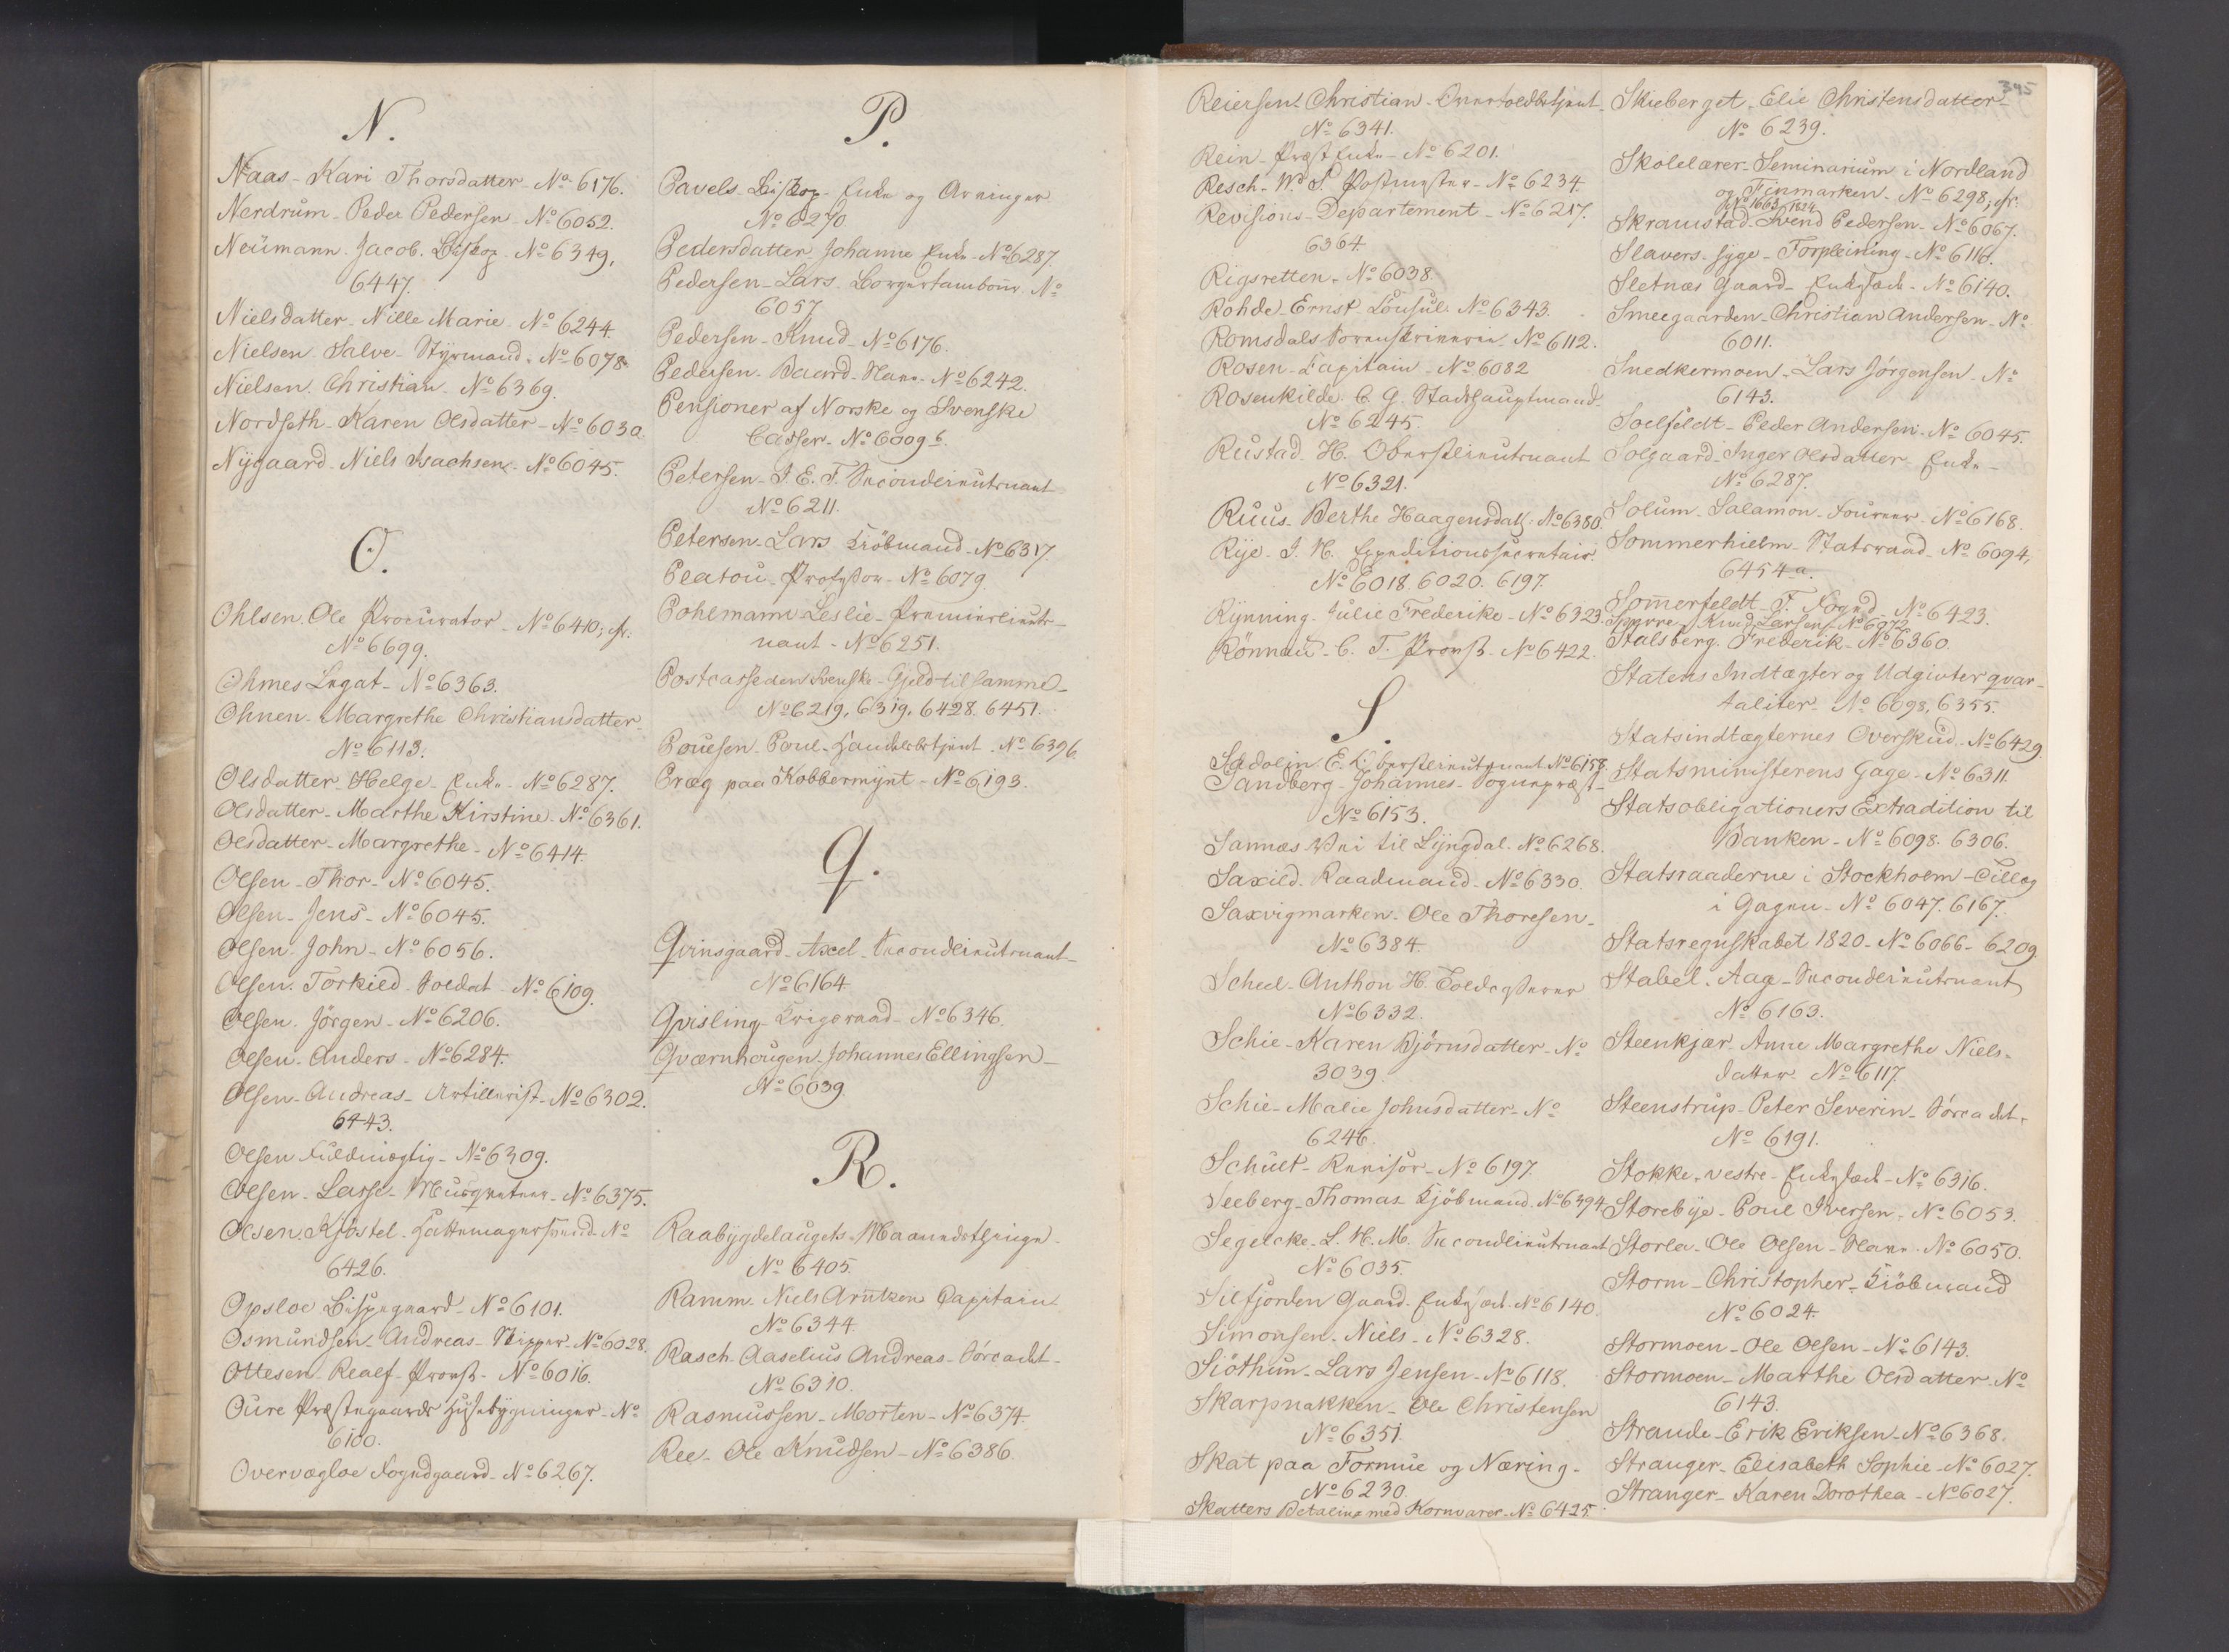 N.
Naas - Kari Thorsdatter - No 6176.
Nerdrum - Peder Pedersen - No 6052.
Neumann. Jacob. Biskop - No 6349,
6447.
Nielsdatter - Nille Marie - No 6244.
Nielsen. Salve - Styrmand. No 6078.
Nielsen. Christian. No 6369.
Nordseth - Karen Olsdatter - No 6030.
Nygaard. Niels Isachsen. No 6045.
O.
Ohlsen. Ole Procurator - No 6410, cfr.
No 6699.
Ohmes Legat - No 6363.
Ohnen. Margrethe Christiansdatter
No 6113.
Olsdatter - Helge - Enke - No 6287.
Olsdatter - Marthe Kirstine - No 6361.
Olsdatter - Margrethe - No 6414.
Olsen - Thor - No 6045.
Olsen - Jens - No 6045.
Olsen. John - No 6056.
Olsen. Torkild. Soldat - No 6109.
Olsen. Jörgen - No 6206.
Olsen - Anders - No 6284.
Olsen - Andreas - Artillerist - No 6302.
6443.
Olsen Fuldmægtig - No 6309.
Olsen. Lasse - Musqueteer - No 6375.
Olsen. Kjöstel. Hattemagersvend. No
6426.
Opsloe Bispegaard - No 6101.
Osmundsen - Andreas - Skipper - No 6028.
Ottesen - Realf - Provst - No 6016.
Oure Præstegaards Huusebygninger - No
6100.
Overvagloe Fogedgaard - No 6267.
P.
Pavels - Biskop - Enke og Arvinger
No 6270
Pedersdatter. Johanne Enke - No 6287.
Pedersen - Lars. Borgertambour. No
6057
Pedersen - Knud - No 6176.
Pedersen - Baard - Slave - No 6242.
Pensioner af Norske og Svenske
Casser - No 6009 b.
Petersen - J. E. F. Secondlieutenant
No 6211.
Petersen - Lars Kiöbmand - No 6317.
Platou - Professor - No 6079.
Pohlmann - Leslie - Premierlieute-
nant - No 6251.
Postcasse den Svenske - Gjeld til samme -
No 6219, 6319, 6428. 6451.
Pouelsen. Poul - Handelsbetjent - No 6396
Præg paa Kobbermynt - No 6193.
Q.
Qvinsgaard - Axel - Secondlieutenant -
No 6164
Qvisling - Krigsraad - No 6346.
Qværnhougen. Johannes Ellingsen -
No 6039.
R.
Raabygdelaugets - Maanedsthinge -
No 6405.
Ramm. Niels Arntzen Capitain
No 6344.
Rasch - Aaselius Andreas - Söecadet -
No 6310.
Rasmussen - Morten - No 6374.
Ree - Ole Knudsen - No 6386.
Reiersen. Christian - Overtoldbetjent -
No 6341.
Rein - Præst Enke - No 6201.
Resch - Wd S. Postmester - No 6234.
Revisions-Departement - No 6217.
6364.
Rigsretten - No 6038.
Rohde - Ernst Consul. No 6343.
Romsdals Sorenskriverie. No 6112.
Rosen - Capitain - No 6082
Rosenkilde. C. G. Stadshauptmand.
No 6245.
Rustad - H. Oberstlieutenant
No 6321.
Ruus - Berthe Haagensdatt. No 6380.
Rye - J. H. Expeditionssecretair.
No 6018. 6020. 6197.
Rynning - Julie Frederike - No 6323.
Rönnau - C. F. Provst - No 6422.
S.
Sadolin E. Oberstlieutenant No 6158.
Sandberg - Johannes - Sognepræst -
No 6153.
Sannæs Vei til Lyngdal. No 6268.
Saxild. Raadmand - No 6330.
Saxvigmarken. Ole Thoresen -
No 6384.
Scheel - Anthon H. Toldcasserer
No 6332.
Schie - Karen Björnsdatter - No
3039.
Schie - Malie Johnsdatter - No
6246.
Schult - Revisor - No 6197.
Seeberg - Thomas - Kjöbmand. No 6394
Segelcke - L. H. M. Secondlieutenant
No 6035.
Silfjorden Gaard - No 6140.
Simonsen. Niels - No 6328.
Siöthun - Lars Jensen - No 6118.
Skarpnakken - Ole Christensen
No 6351.
Skat paa Formue og Næring -
No 6230.
Skatters Betaling med Kornvarer - No 6425
395
Skieberget - Elie Christensdatter -
No 6239.
Skolelærer-Seminarium i Nordland
og Finmarken - No 6298, cfr.
No 1663, 1624
Skramstad - Svend Pedersen - No 6067.
Slavers - syge - Forpleining - No 6116.
Sletnæs Gaard - No 6140.
Smeegaarden - Christian Andersen - No
6011.
Snedkermoen - Lars Jörgensen - No
6143.
Soelfeldt - Peder Andersen - No 6045.
Solgaard - Inger Olsdatter - Enke -
No 6287.
Solum - Salamon - Foureer - No 6168.
Sommerhielm - Statsraad - No 6094,
6454 a.
Sommerfeldt - F. Foged - No 6423.
Spurre - Knud Larsen - No 6072
Stalsberg. Frederik - No 6360.
Statens Indtægter og Udgivter qvar-
taliter - No 6098, 6355.
Statsindtægternes Overskud - No 6429.
Statsministerens Gage - No 6311.
Statsobligationers Extradition til
Banken - No 6098. 6306.
Statsraaderne i Stockholm - Tillæg
i Gagen - No 6047. 6167.
Statsregnskabet 1820 - No 6066 - 6209.
Stabel. Aage - Secondlieutenant
No 6163.
Steenkjær. Anne Margrethe Niels-
datter - No 6117.
Steenstrup - Peter Severin - Söecadet -
No 6191.
Stokke, vestre - No 6316.
Storebye - Poul Iversen - No 6053.
Storla - Ole Olsen - Slave - No 6050.
Storm - Christopher - Kiöbmand
No 6024.
Stormoen - Ole Olsen - No 6143.
Stormoen - Marthe Olsdatter - No
6143.
Strande - Erik Eriksen - No 6368.
Stranger - Elisabeth Sophie - No 6027.
Stranger - Karen Dorothea - No 6027.